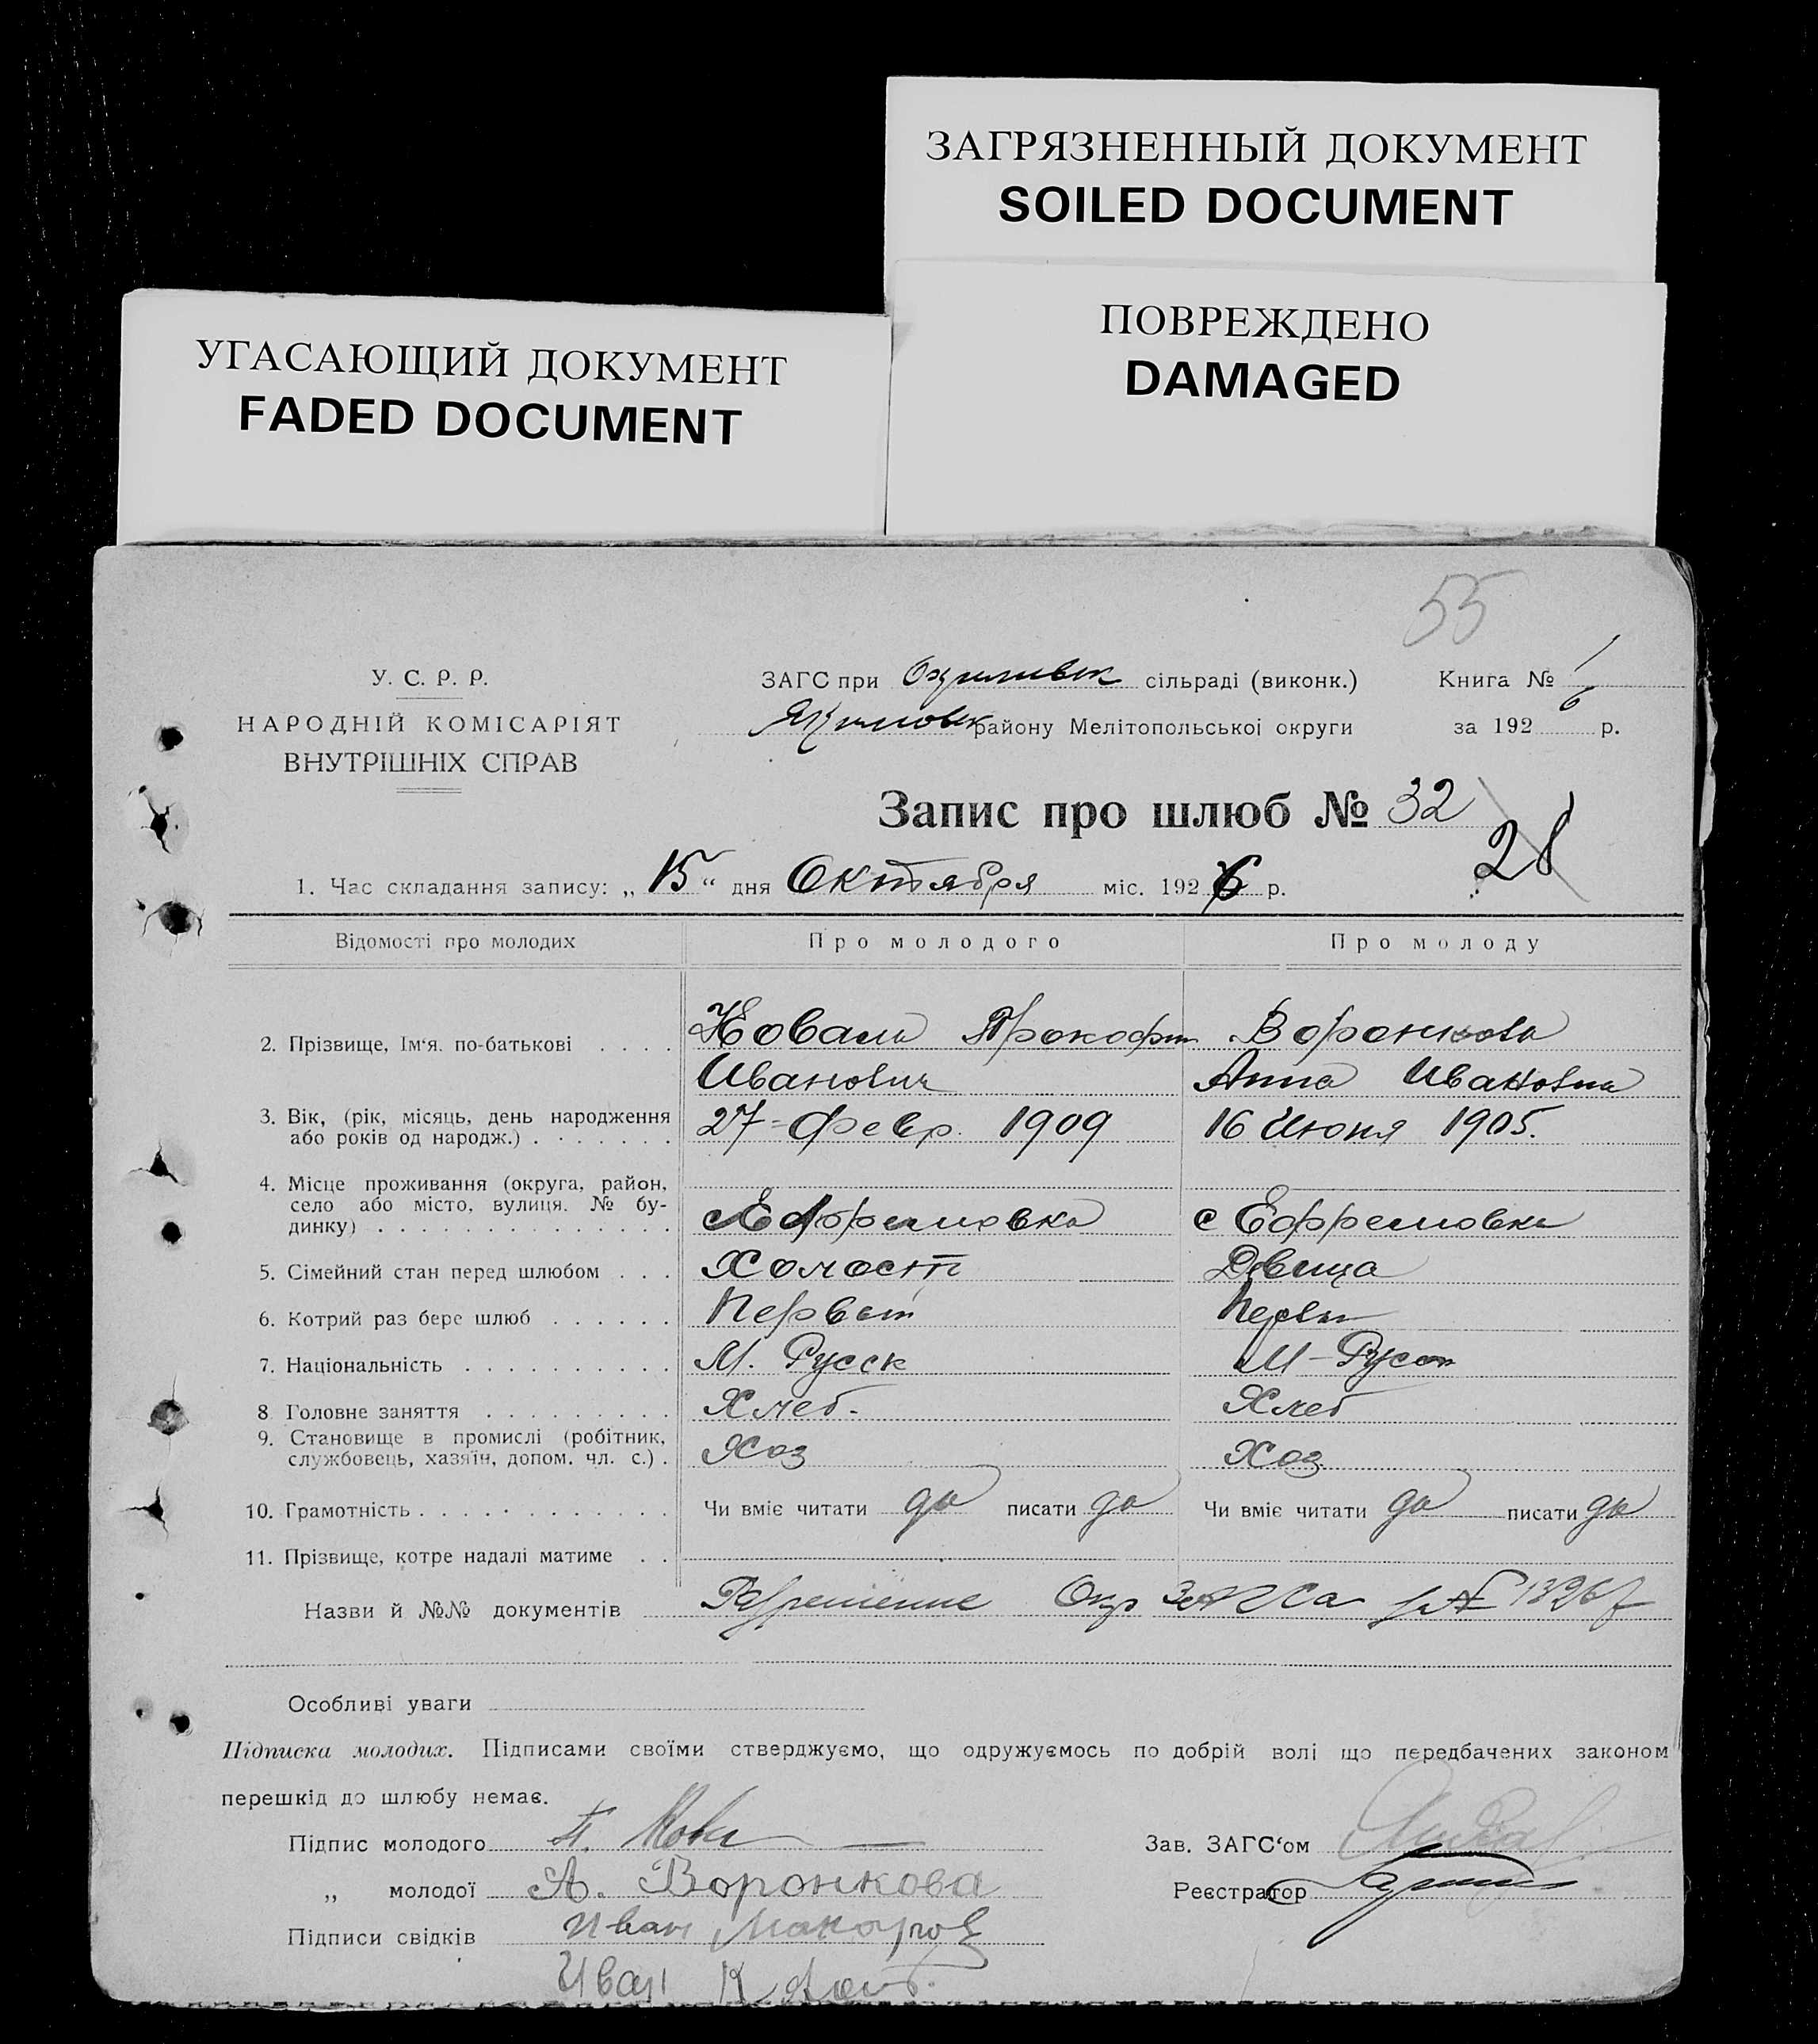 ЗАГРЯЗНЕННЫЙ ДОКУМЕНТ
SOILED DOCUMENT
УГАСАЮЩИЙ ДОКУМЕНТ
FADED DOCUMENT
ПОВРЕЖДЕНО
DAMAGED
55
У. С. Р. Р.
НАРОДНІЙ КОМІСАРІЯТ
ВНУТРІШНІХ СПРАВ
ЗАГС при сільраді (виконк.)
Якимовск району Мелітопольської округи
Книга № 1
за 192 6 р.
Запис про шлюб № 32
28
1. Час складання запису: „ 15 “ дня Октября міс. 192 6 р.
Відомості про молодих Про молодого Про молоду
2. Прізвище, Ім‘я. по-батькові Коваль Прокофи Воронкова
Иванович Анна Ивановна
3. Вік, (рік, місяць, день народження
або років од народж.) 27 = Февр. 1909 16 Июня 1905.
4. Місце проживання (округа, район,
село або місто, вулиця. № бу-
динку) с Ефремовка с Ефремовка
5. Сімейний стан перед шлюбом Холост Девица
6. Котрий раз бере шлюб Первый Первы
7. Національність М. Русск М - Русск
8 Головне заняття Хлеб. Хлеб
9. Становище в промислі (робітник,
службовець, хазяїн, допом. чл. с.) Хоз Хоз
10. Грамотність Чи вміє читати да писати да Чи вміє читати да писати да
11. Прізвище, котре надалі матиме
Назви й №№ документів Разрешение Окр ЗАГСа №
Особливі уваги
Підписка молодих. Підписами своїми стверджуємо, що одружуємось по добрій волі що передбачених законом
перешкід до шлюбу немає.
Підпис молодого П. Кова
„ молодої А. Воронкова
Підписи свідків Иван Макаров
Иван
Зав. ЗАГС‘ом
Реєстратор